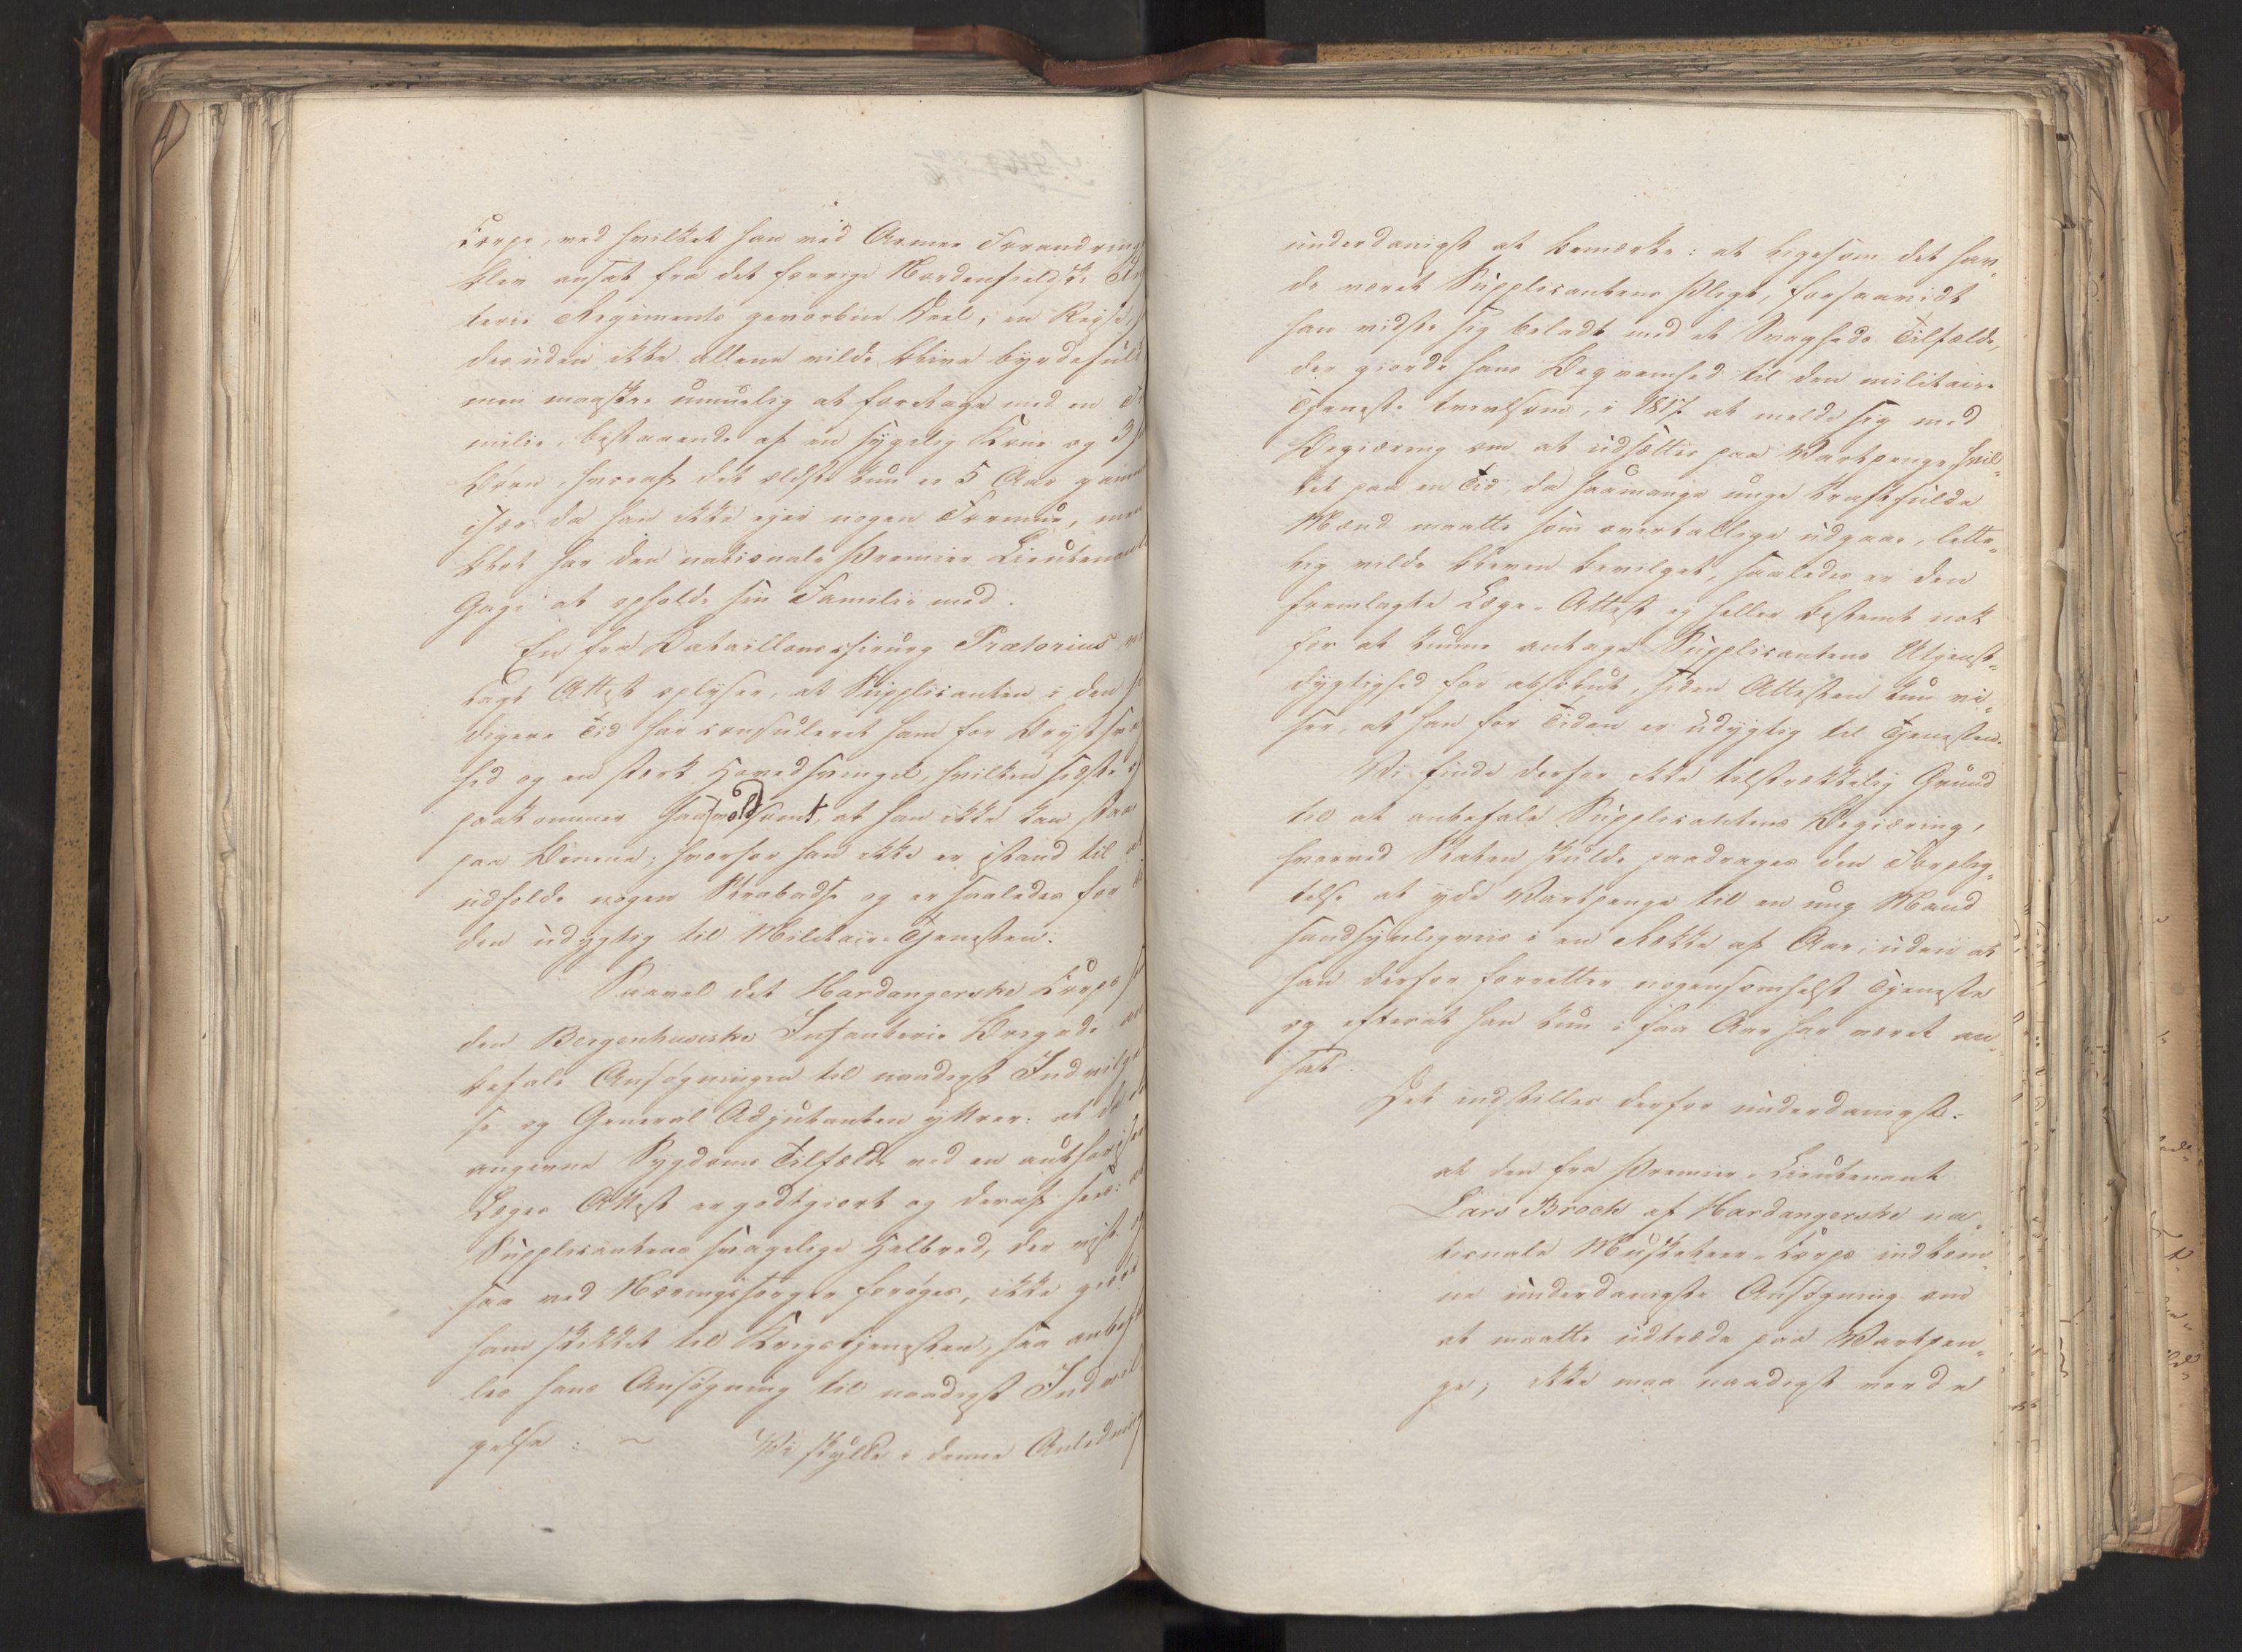 Corps, ved hvilket han ved Armee Forandring
blev ansat fra det forrige Nordenfieldske
terie Regiments gevorbne Deel; en Reise,
desuden ikke allene vilde blive byrdefuld
men maaskee umuelig at foretage med en Fa
milie, bestaaende af en sygelig Kone og 3
Børn, hvoraf det ældste kun er 5 Aar gammel
især da han ikke ejer nogen Formue, men
blot har den nationale Premier Lieutenant
Gage at opholde sin Familie med.
En fra Bataillonschirurg Prætorius
tagt Attest oplyser, at Supplicanten i den
digere Tid har consuleret ham for Brystsvag
hed og en stærk Hovedsvingel, hvilken sidste
paakommer saa voldsomt, at han ikke kan staa
paa Benene; hvorfor han ikke er istand til at
udholde nogen Strabadse og er saaledes for
den udygtig til Militair-Tjenesten.
Saavel det Hardangerske Corps
den Bergenhusiske Infanterie Brigade an
befale Ansøgningen til naadigst Indvilgel
se og General Adjutanten yttrer: at da de
angivne Sygdoms Tilfælde ved en authoriseret
Læges Attest er godtgiort og deraf sees:
Supplicantens svagelige Helbred, der vist
saa ved Næringssorger forøges, ikke giør
ham skikket til Krigstjenesten, saa anbefa
les hans Ansøgning til naadigst Indvil
gelse: ~ Vi skulle i denne Anledning
underdanigst at bemærke: at ligesom det hav„
de været Supplicantens Pligt, forsaavidt
han vidste sig beladt med et Svagheds Tilfælde,
der giorde hans Beqvemhed til den militaire
Tjeneste tvivlsom, i 1817 at melde sig med
Begiæring om at udsættes paa Vartpenge hvil„
ket paa en Tid, da saamange unge kraftfulde
Mænd maatte som overtallige udgaae, lette„
lig vilde bleven bevilget, saaledes er den
fremlagte Læge-Attest ej heller bestemt nok
for at kunne antage Supplicantens Utjenst„
dygtighed for absolut, siden Attesten kun vi„
ser, at han for Tiden er udygtig til Tjenesten.
Vi finde derfor ikke tilstrækkelig Grund
til at anbefale Supplicantens Begiæring,
hvorved Staten skulde paadrages den Forplig„
telse at yde Vartpenge til en ung Mand
sandsynligviis i en Række af Aar, uden at
han derfor forretter nogensomhelst Tjeneste
og efterat han kun i faa Aar har været an„
sat.
Det indstilles derfor underdanigst:
at den fra Premier-Lieutenant
Lars Broch af Hardangerske na„
tionale Musketeer-Corps indkom„
ne underdanigste Ansøgning om
at maatte udtræde paa Vartpen„
ge, ikke maa naadigst vorde